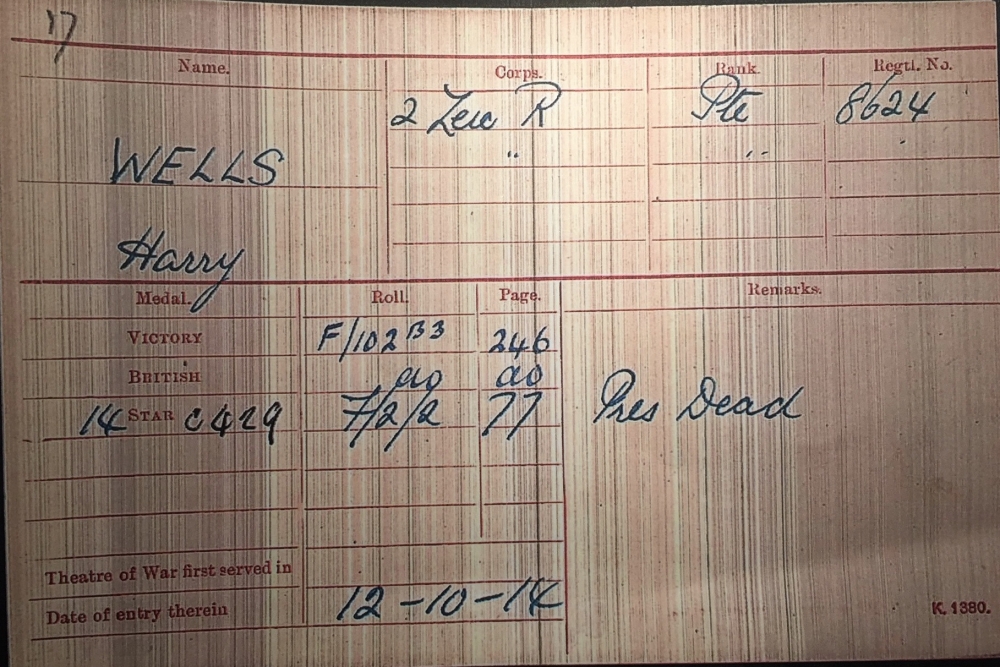 17
Name. Corps. Rank. Regtl. No.
2 Leic R Pte 8624
" "
WELLS
Harry
Medal. Roll. Page. Remarks.
VICTORY F/102 B3 246
BRITISH do do
14 STAR C429 7/2/2 77 Pres Dead
Theatre of War first served in
Date of entry therein 12-10-14
K. 1380.